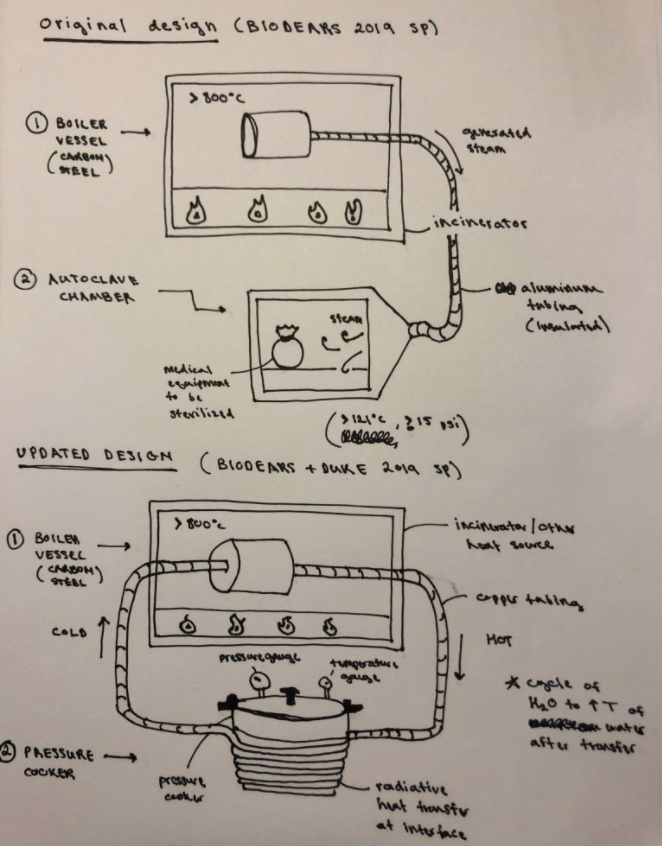 Original design (BIODEARS 2019 SP)
> 800°C
① BOILER
VESSEL
(CARBON
STEEL)
generated
steam
incinerator
② AUTOCLAVE
CHAMBER
steam
aluminum
tubing
(insulated)
medical
equipment
to be
sterilized
(>121°C, ≥15 psi)
UPDATED DESIGN (BIODEARS + DUKE 2019 SP)
> 800°C
① BOILER
VESSEL
(CARBON
STEEL)
incinerator/other
heat source
copper tubing
COLD
HOT
pressure gauge
temperature
gauge
* cycle of
H₂O to ↑T of
water
after transfer
② PRESSURE
COOKER
pressure
cooker
radiative
heat transfer
at interface